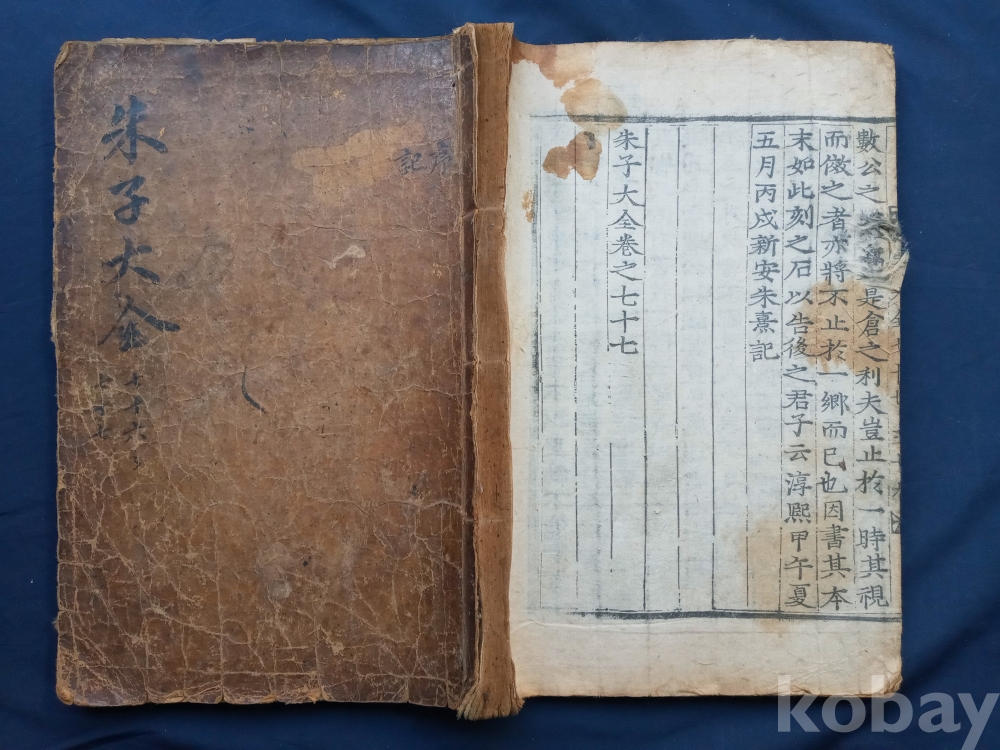 朱子大全
七十六
七十七
序
記
數公之是倉之利夫豈止於一時其視
而傚之者亦將不止於一鄉而已也因書其本
末如此刻之石以告後之君子云淳熙甲午夏
五月丙戌新安朱熹記
朱子大全卷之七十七
kobay